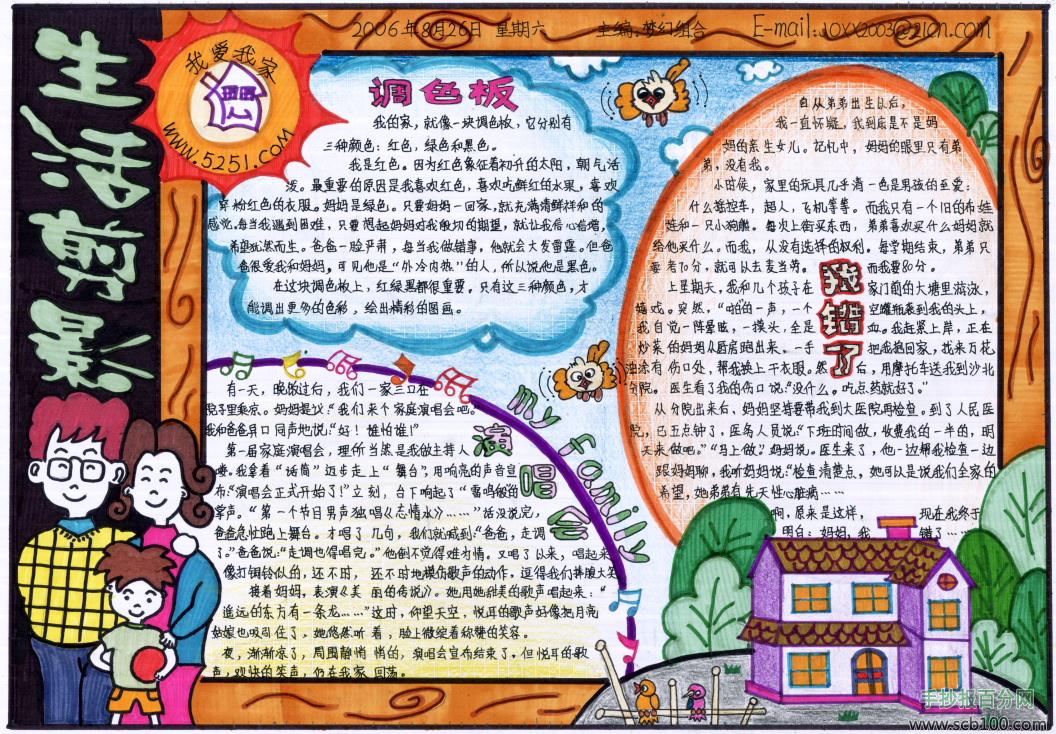 生活剪影
2006年8月26日 星期六
主编:梦幻组合
E-mail:JOYX2003@21cn.com
我爱我家
www.5251.com
调色板
我的家，就像一块调色板，它分别有
三种颜色：红色，绿色和黑色。
我是红色。因为红色象征着初升的太阳，朝气活
泼。最重要的原因是我喜欢红色，喜欢吃鲜红的水果，喜欢
穿粉红色的衣服。妈妈是绿色。只要妈妈一回家，就充满清鲜祥和的
感觉。每当我遇到困难，只要想起妈妈对我殷切的期望，就让我信心倍增，
希望犹然而生。爸爸一脸严肃，每当我做错事，他就会大发雷霆。但爸
爸很爱我和妈妈，可见他是“外冷内热”的人，所以说他是黑色。
在这块调色板上，红绿黑都很重要。只有这三种颜色，才
能调出更多的色彩，绘出精彩的图画。
我错了
自从弟弟出生以后，
我一直怀疑，我到底是不是妈
妈的亲生女儿。记忆中，妈妈的眼里只有弟
弟，没有我。
小时候，家里的玩具几乎清一色是男孩的至爱：
什么遥控车，超人，飞机等等。而我只有一个旧的布娃
娃和一只小狗熊。每次上街买东西，弟弟喜欢买什么妈妈就
给他买什么。而我，从没有选择的权利。每学期结束，弟弟只
要考70分，就可以去麦当劳。而我要80分。
上星期天，我和几个孩子在家门前的大塘里游泳，
嬉戏。突然，“啪的一声，一个空罐瓶丢到我的头上，
我自觉一阵晕眩，一摸头，全是血。我赶紧上岸，正在
炒菜的妈妈从厨房跑出来，一手把我抱回家，找来万花
油涂有伤口处，帮我换上干衣服。然后，用摩托车送我到沙北
分院。医生看了我的伤口说：“没什么。吃点药就好了。”
从分院出来后，妈妈坚持要带我到大医院再检查。到了人民医
院，已五点钟了，医务人员说：“下班时间做，收费我的一半的，明
天来做吧。”“马上做。”妈妈说。医生来了，他一边帮我检查一边
跟妈妈聊，我听妈妈说：“检查清楚点，她可以是说我们全家的
希望，她弟弟有先天性心脏病……
啊，原来是这样，现在我终于
明白：妈妈，我错了……
my family
演唱会
有一天，晚饭过后，我们一家三口在
院子里乘凉。妈妈提议：“我们来个家庭演唱会吧。”
我和爸爸异口同声地说：“好！谁怕谁！”
第一届家庭演唱会，理所当然是我做主持人
喽。我拿着“话筒”迈步走上“舞台”，用响亮的声音宣
布：“演唱会正式开始了！”立刻，台下响起了“雷鸣般的
掌声。“第一个节目男声独唱《忘情水》……”话没说完，
爸爸急忙跑上舞台。才唱了几句，我们就喊到：“爸爸，走调
了。”爸爸说：“走调也得唱完。”他倒不觉得难为情。又唱了以来，唱起来
像打铜铃似的，还不时，还不时地模仿歌声的动作，逗得我们捧腹大笑
接着妈妈，表演《美丽的传说》。她用她甜美的歌声唱起来：“
遥远的东方有一条龙……”这时，仰望天空，悦耳的歌声好像把月亮
姑娘也吸引住了，她悠然听着，脸上微绽着称赞的笑容。
夜，渐渐凉了，周围静悄悄的，演唱会宣布结束了，但悦耳的歌
声，欢快的笑声，仍在我家回荡。
手抄报百分网
www.scb100.com